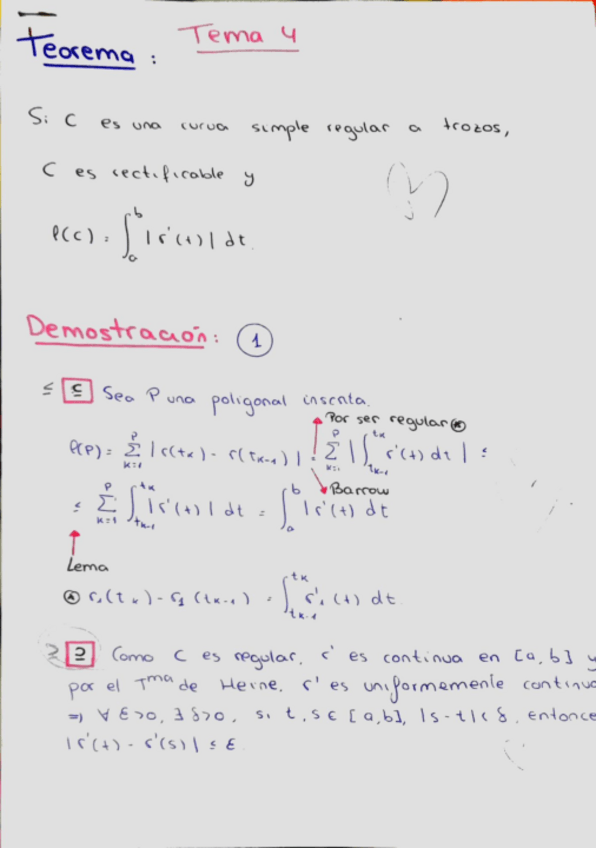 Tema 4
Teorema:
Si C es una curva simple regular a trozos,
C es rectificable y
ℓ(C) = ∫_a^b |r'(t)| dt.
Demostración: ①
≤ ⊆ Sea P una poligonal inscrita.
Por ser regular ⊛
ℓ(P) = Σ_{k=1}^p |r(t_k) - r(t_{k-1})| = Σ_{k=1}^p |∫_{t_{k-1}}^{t_k} r'(t) dt| ≤
Barrow
≤ Σ_{k=1}^p ∫_{t_{k-1}}^{t_k} |r'(t)| dt = ∫_a^b |r'(t)| dt
Lema
⊛ r_1(t_k) - r_1(t_{k-1}) = ∫_{t_{k-1}}^{t_k} r'_1(t) dt.
≥ ⊇ Como C es regular, r' es continua en [a,b] y
por el Tma de Heine, r' es uniformemente continua
⇒ ∀ε>0, ∃δ>0, si t,s∈[a,b], |s-t|<δ, entonce
|r'(t) - r'(s)| ≤ ε